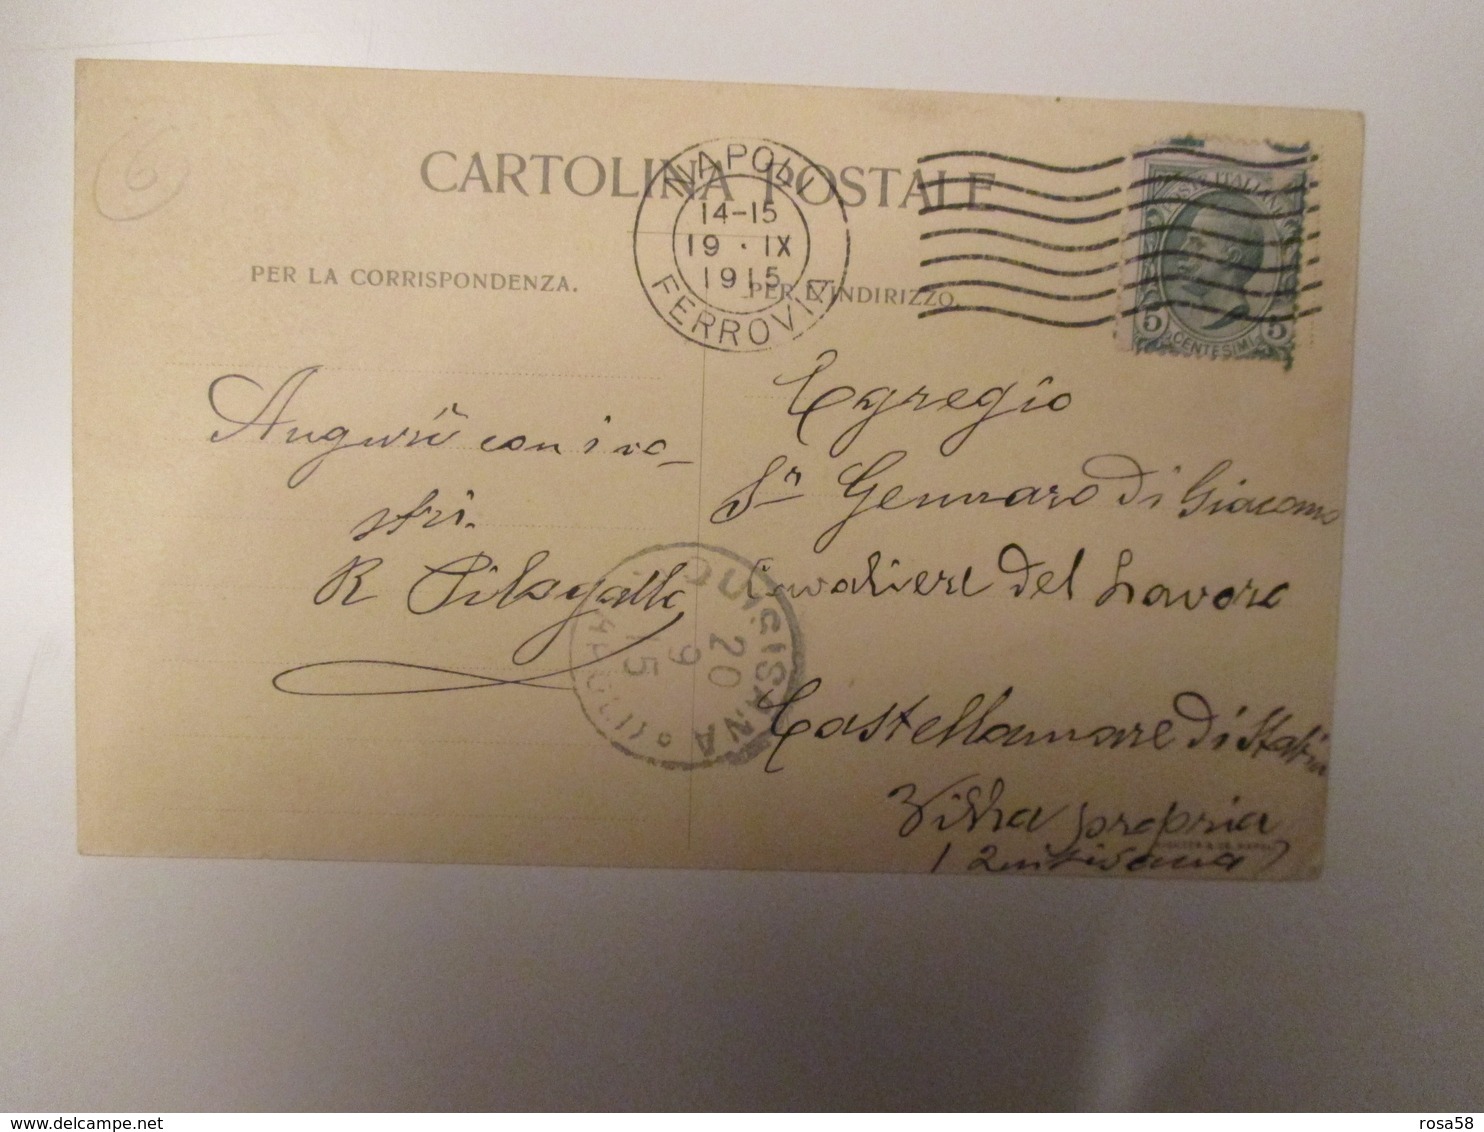 6
CARTOLINA POSTALE
NAPOLI
14-15
19 · IX
1915
FERROVIA
POSTE ITALIANE
5 5
CENTESIMI
PER LA CORRISPONDENZA.
PER L'INDIRIZZO.
Auguri con i vo-
stri.
R
QUISISANA
20
9
15
(NAPOLI)
Egregio
Sr Gennaro Di Giacomo
Cavaliere del Lavoro
Castellammare di Stabia
Villa propria
(Quisisana)
rosa58